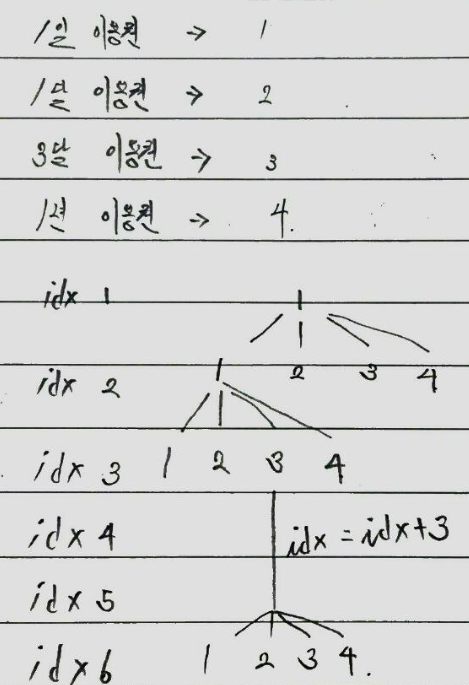 1일 이용권 → 1
1달 이용권 → 2
3달 이용권 → 3
1년 이용권 → 4.
idx 1 1
idx 2 1 2 3 4
idx 3 1 2 3 4
idx 4 idx = idx+3
idx 5
idx 6 1 2 3 4.